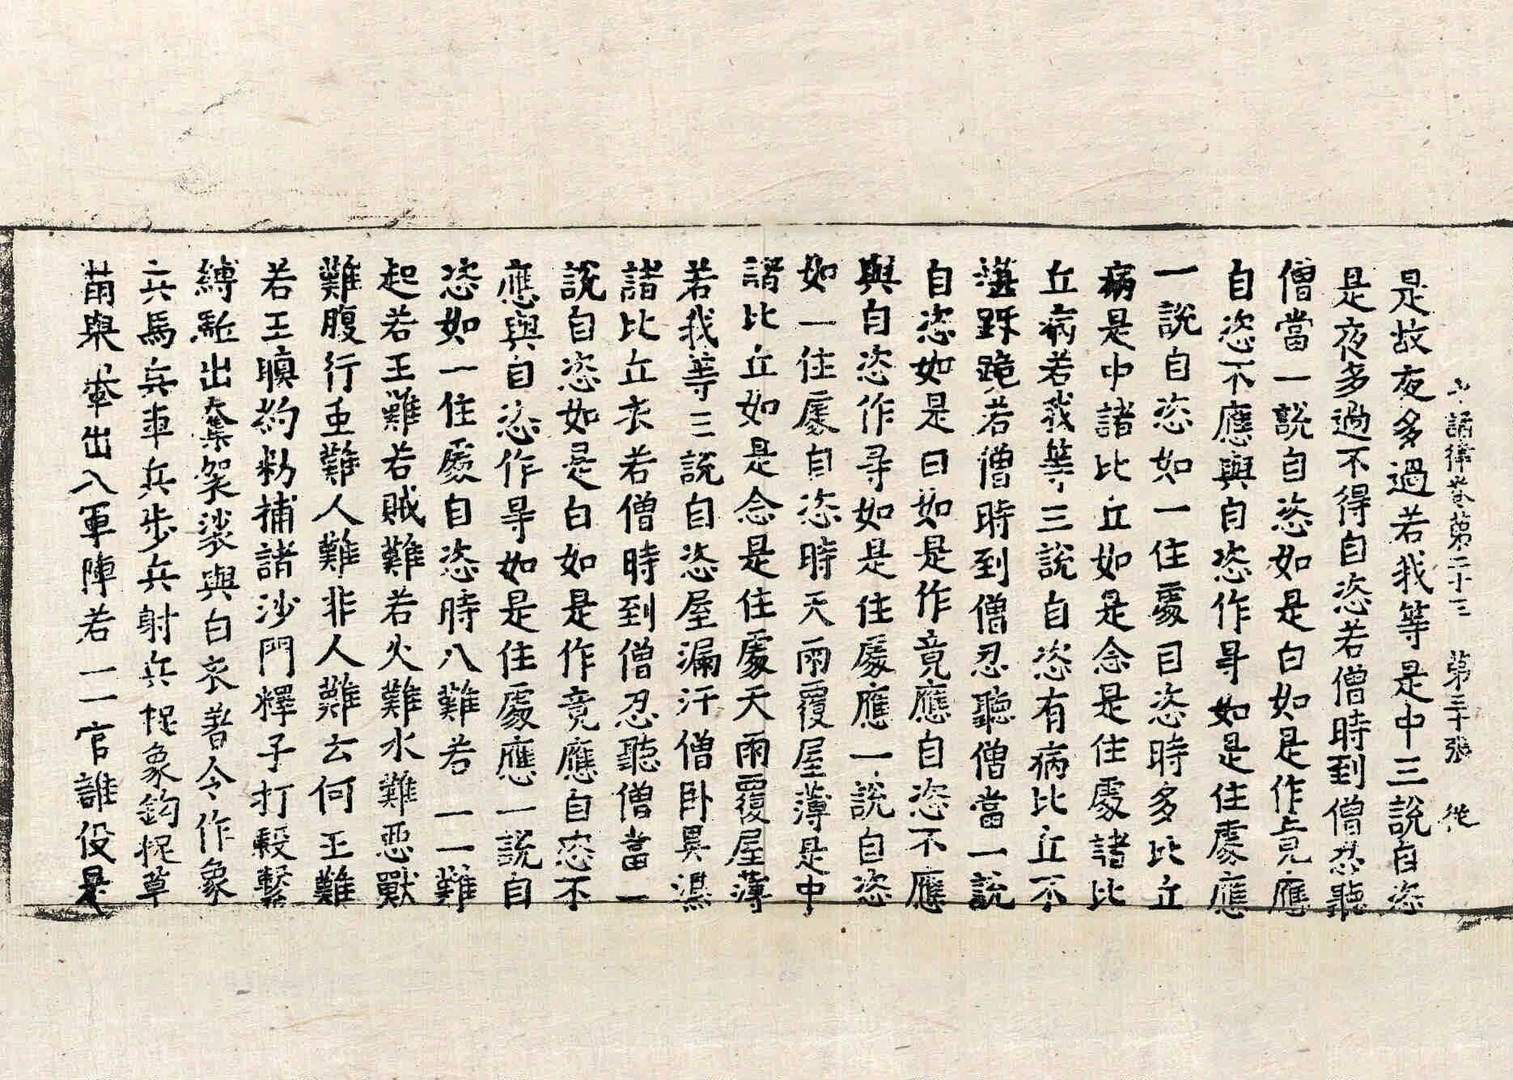 十誦律卷第二十三 第三十張 從
是故夜多過若我等是中三說自恣
是夜多過不得自恣若僧時到僧忍聽
僧當一說自恣如是白如是作竟應
自恣不應與自恣作㝵如是住處應
一說自恣如一住處自恣時多比丘
病是中諸比丘如是念是住處諸比
丘病若我等三說自恣有病比丘不
堪跪若僧時到僧忍聽僧當一說
自恣如是白如是作竟應自恣不應
與自恣作㝵如是住處應一說自恣
如一住處自恣時天雨覆屋薄是中
諸比丘如是念是住處天雨覆屋薄
若我等三說自恣屋漏汙僧卧具濕
諸比丘衣若僧時到僧忍聽僧當一
說自恣如是白如是作竟應自恣不
應與自恣作㝵如是住處應一說自
恣如一住處自恣時八難若一一難
起若王難若賊難若火難水難惡獸
難腹行虫難人難非人難云何王難
若王瞋約勑捕諸沙門釋子打𣪠繫
縛駈出奪袈裟與白衣著令作象
兵馬兵車兵步兵射兵捉象鈎捉草
莆輿輦出入軍陣若一一官誰役是